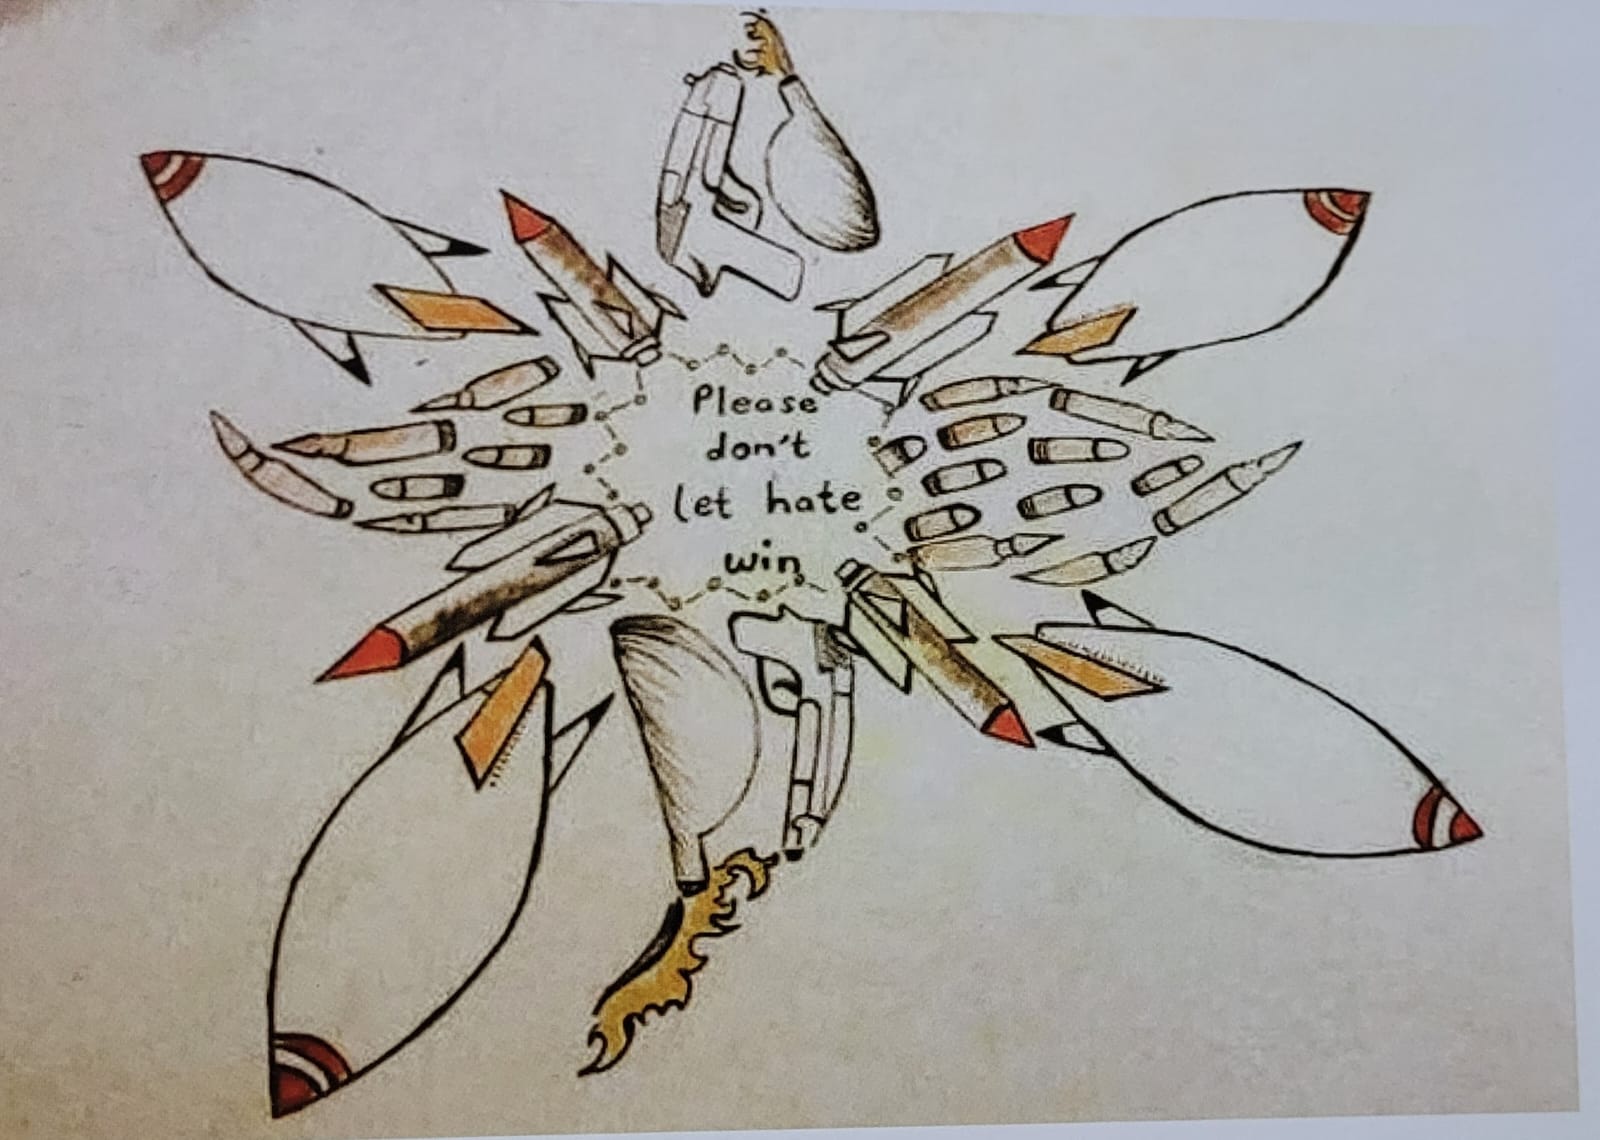 Please
don't
let hate
win